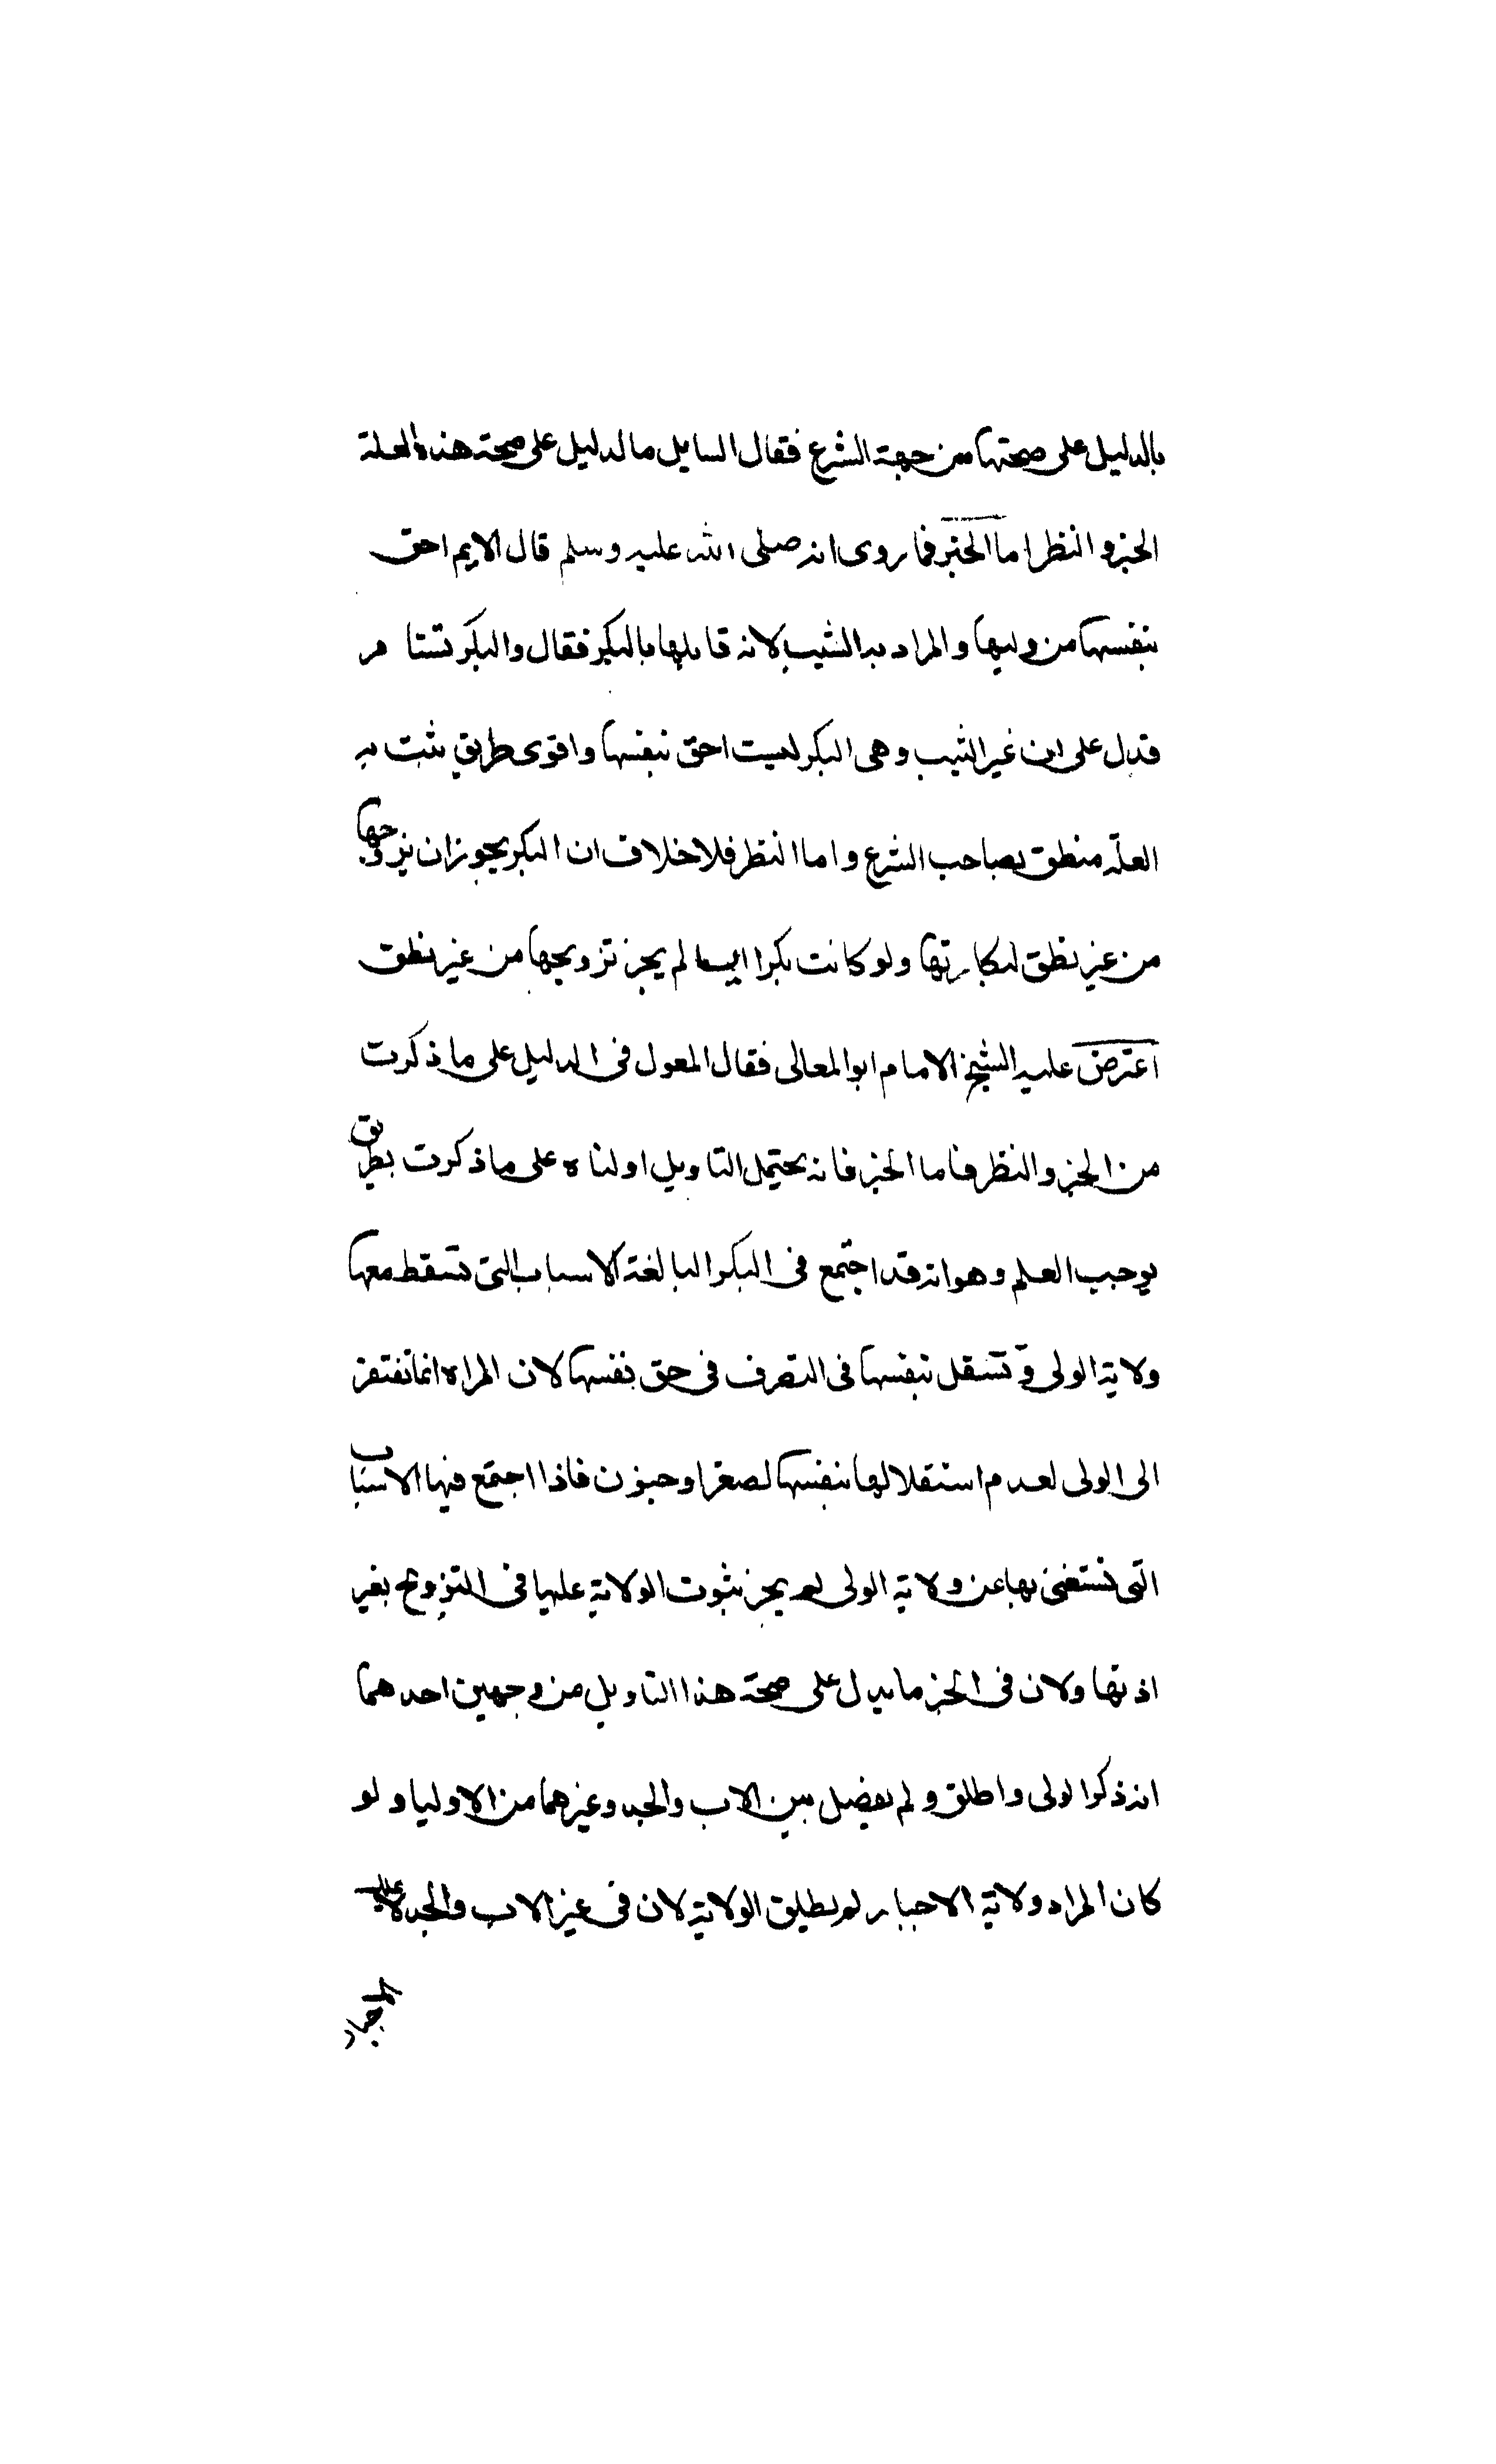 بالدليل على صحتها من جهة الشرع فقال السايل ما الدليل على صحة هذه العلة
الخبر والنظر اما الخبر فما روى انه صلى الله عليه وسلم قال الايم احق
بنفسها من وليها والمراد به الثيب لانه قابلها بالبكر فقال والبكر تستامر
فدل على ان غير الثيب وهى البكر ليست احق بنفسها واقوى طريق يثبت به
العلة منطق بصاحب الشرع واما النظر فلا خلاف ان البكر يجوز ان يزوجها
من غير نطق لبكارتها ولو كانت بكرا لم يجز تزويجها من غير نطق
اعترض عليه الشيخ الامام ابو المعالى فقال المعول فى الدليل على ما ذكرت
من الخبر والنظر فاما الخبر فانه يحتمل التاويل اولناه على ما ذكرت بطريق
يوجب العلم وهو انه قد اجتمع فى البكر البالغة الاسباب التى تسقط معها
ولاية الولى وتستقل بنفسها فى التصرف فى حق نفسها لان المراه انما تفتقر
الى الولى لعدم استقلالها بنفسها لصغر او جنون فاذا اجتمع فيها الاسباب
التى تستغنى بها عن ولاية الولى لم يجز ثبوت الولاية عليها فى التزويج بغير
اذنها ولان فى الخبر ما يدل على صحة هذا التاويل من وجهين احدهما
انه ذكر الولى واطلق ولم يفصل بين الاب والجد وغيرهما من الاوليا ولو
كان المراد ولاية الاجبار لم يطلق الولاية لان فى غير الاب والجد لا